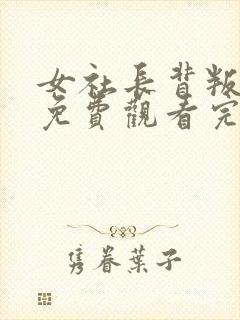 女社長背叛
免費觀看完
雋眷葉子